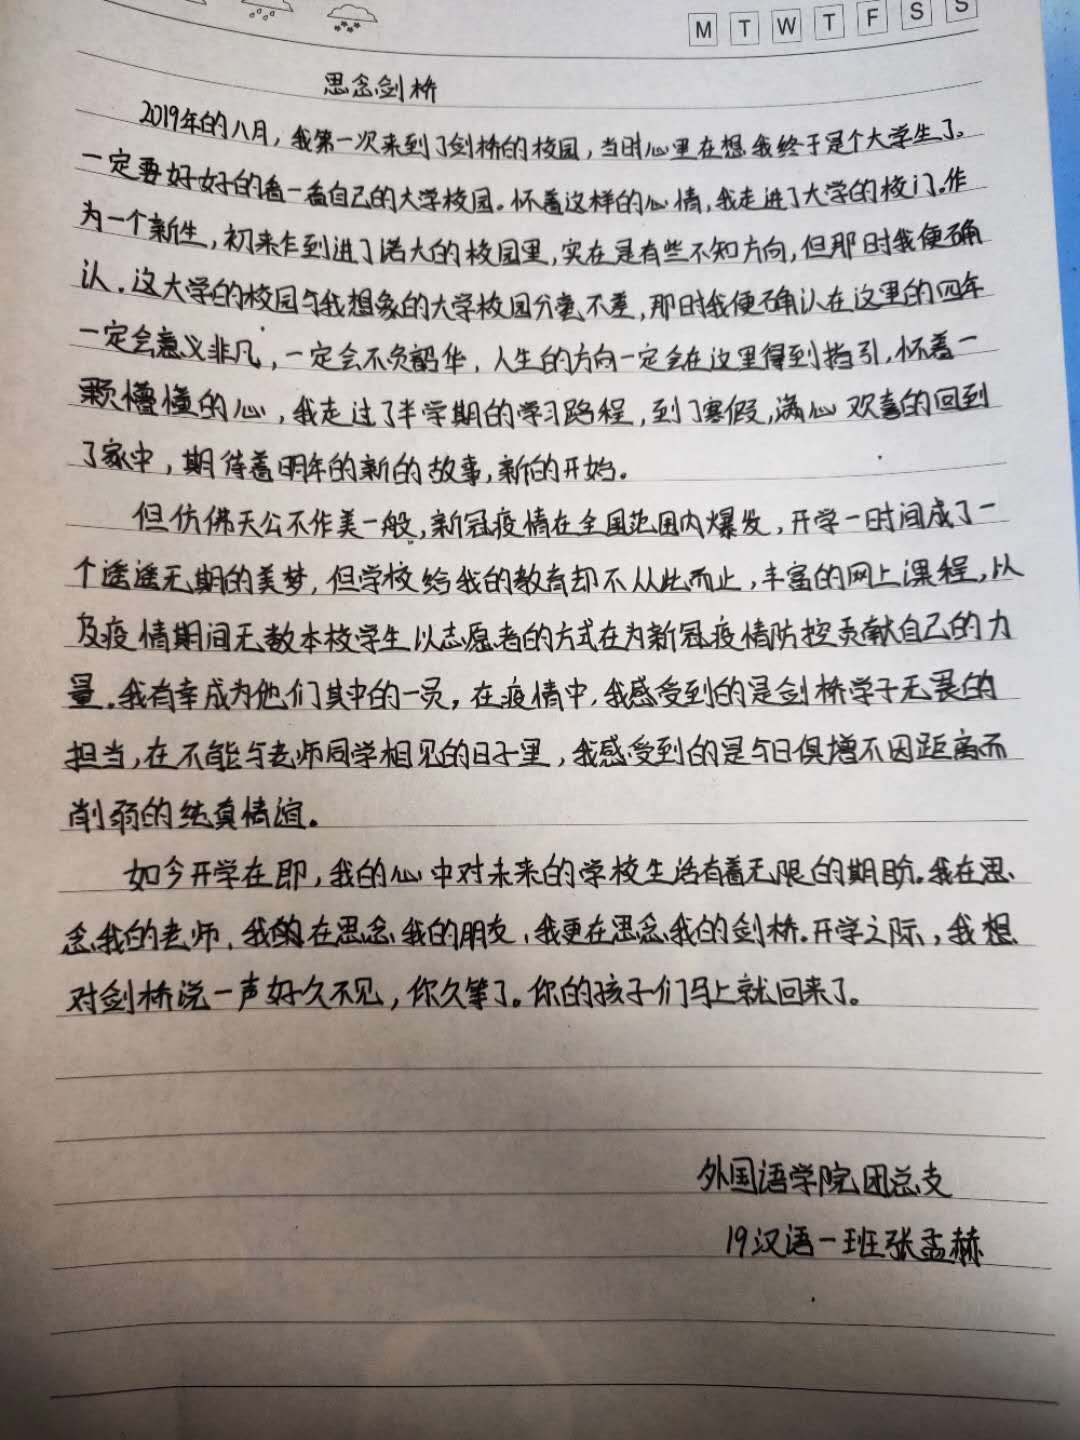 M T W T F S S
思念剑桥
2019年的八月，我第一次来到了剑桥的校园，当时心里在想我终于是个大学生了。
一定要好好的看一看自己的大学校园。怀着这样的心情，我走进了大学的校门。作
为一个新生，初来乍到进了诺大的校园里，实在是有些不知方向，但那时我便确
认．这大学的校园与我想象的大学校园分毫不差，那时我便确认在这里的四年
一定会意义非凡，一定会不负韶华，人生的方向一定会在这里得到指引，怀着一
颗懵懂的心，我走过了半学期的学习路程，到了寒假，满心欢喜的回到
了家中，期待着明年的新的故事，新的开始。
但仿佛天公不作美一般，新冠疫情在全国范围内爆发，开学一时间成了一
个遥遥无期的美梦，但学校给我的教育却不从此而止，丰富的网上课程，以
及疫情期间无数本校学生以志愿者的方式在为新冠疫情防控贡献自己的力
量．我有幸成为他们其中的一员，在疫情中，我感受到的是剑桥学子无畏的
担当，在不能与老师同学相见的日子里，我感受到的是与日俱增不因距离而
削弱的纯真情谊。
如今开学在即，我的心中对未来的学校生活有着无限的期盼．我在思
念我的老师，我在思念我的朋友，我更在思念我的剑桥．开学之际，我想
对剑桥说一声好久不见，你久等了。你的孩子们马上就回来了。
外国语学院团总支
19汉语一班张孟赫